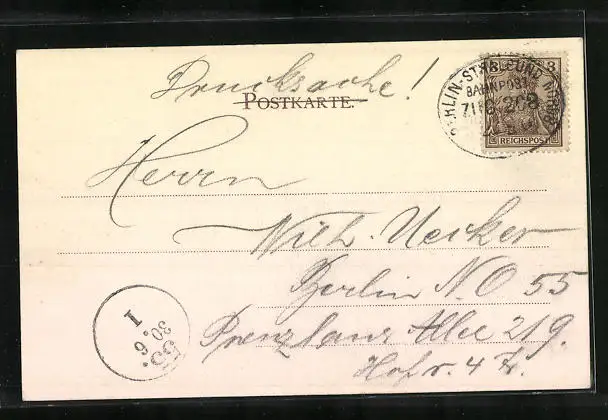 Drucksache!
POSTKARTE.
3 3
BERLIN-STRALSUND
BAHNPOST
ZUG 208
REICHSPOST
Herrn
Wilh. Uecker
Berlin N.O 55
Prenzlauer Allee 219.
Hof r. 4 Tr.
1
30.6.
55